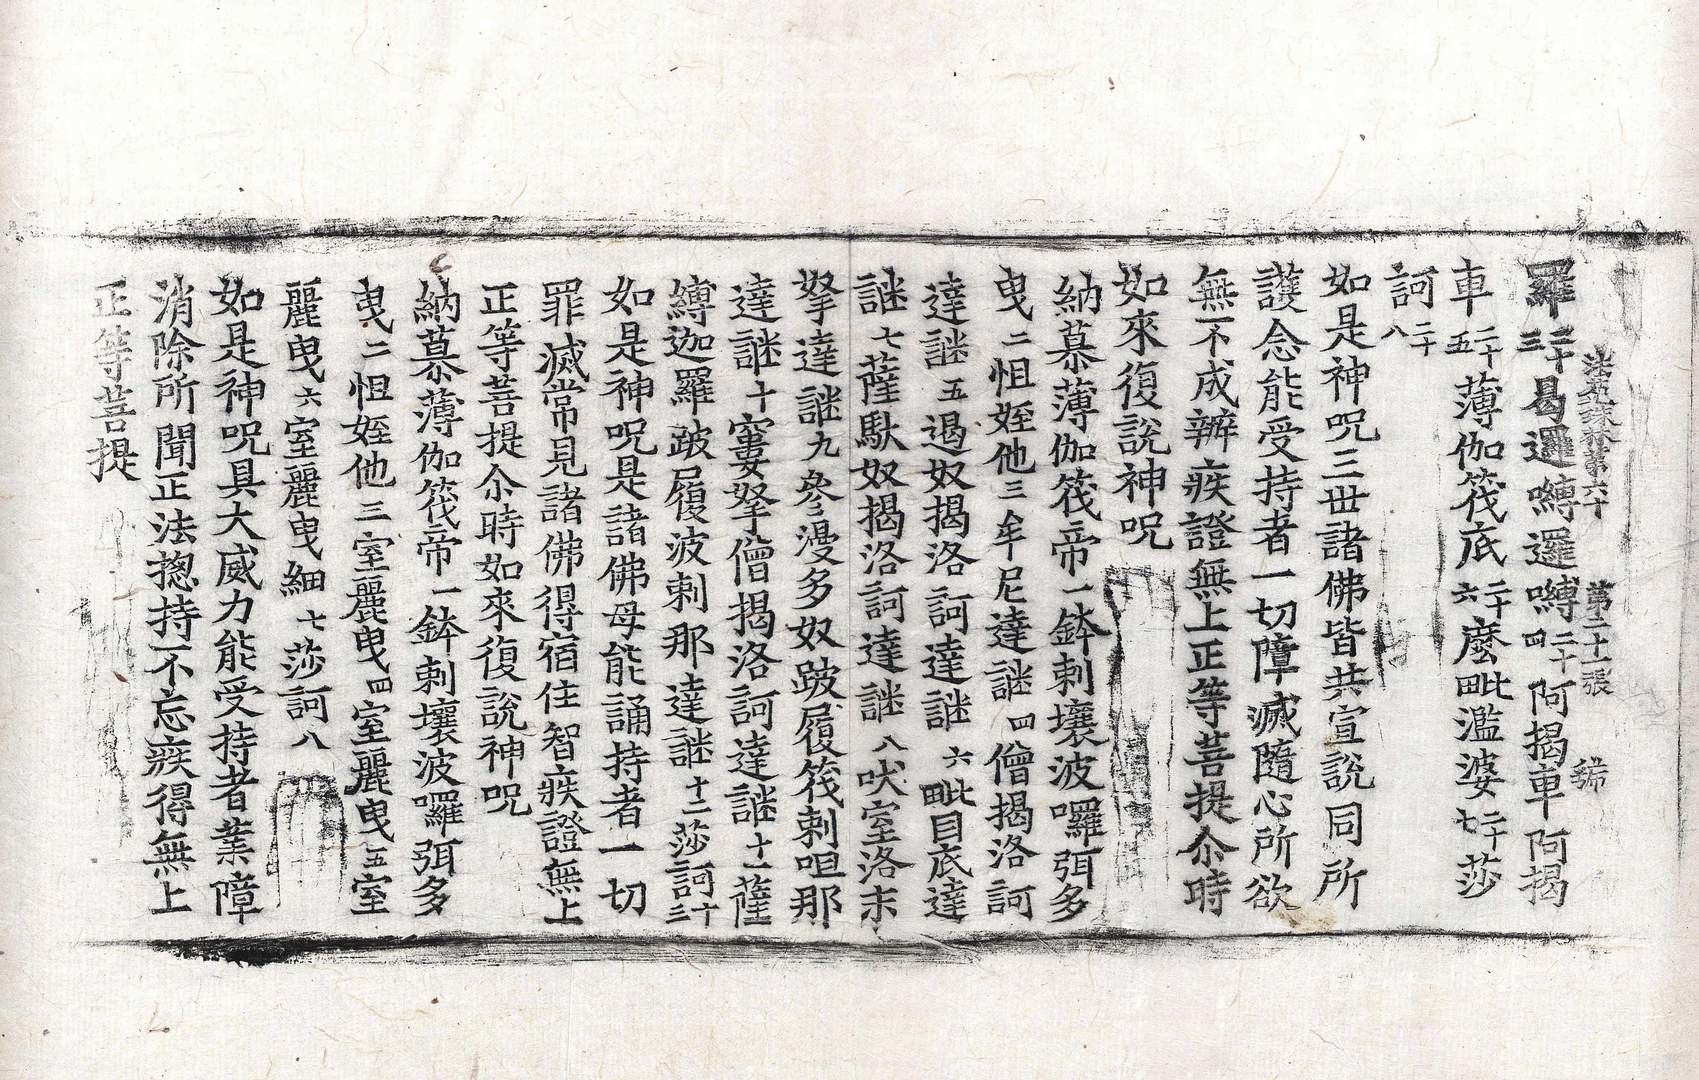 法苑珠林第六十 第二十一張 㱕
羅二十三曷邏嚩邏嚩二十四阿揭車阿揭
車二十五薄伽筏底二十六麽毗濫婆二十七莎
訶二十八
如是神呪三世諸佛皆共宣說同所
護念能受持者一切障滅隨心所欲
無不成辦疾證無上正等菩提尒時
如來復說神呪
納慕薄伽筏帝一鉢剌壤波囉弭多
曳二怛姪他三牟尼達謎四僧揭洛訶
達謎五遏奴揭洛訶達謎六毗目底達
謎七薩馱奴揭洛訶達謎八吠室洛末
拏達謎九參漫多奴跛履筏剌呾那
達謎十窶拏僧揭洛訶達謎十一薩
縛迦羅跛履波剌那達謎十二莎訶十三
如是神呪是諸佛母能誦持者一切
罪滅常見諸佛得宿住智疾證無上
正等菩提尒時如來復說神呪
納慕薄伽筏帝一鉢剌壤波囉弭多
曳二怛姪他三室麗曳四室麗曳五室
麗曳六室麗曳細七莎訶八
如是神呪具大威力能受持者業障
消除所聞正法揔持不忘疾得無上
正等菩提